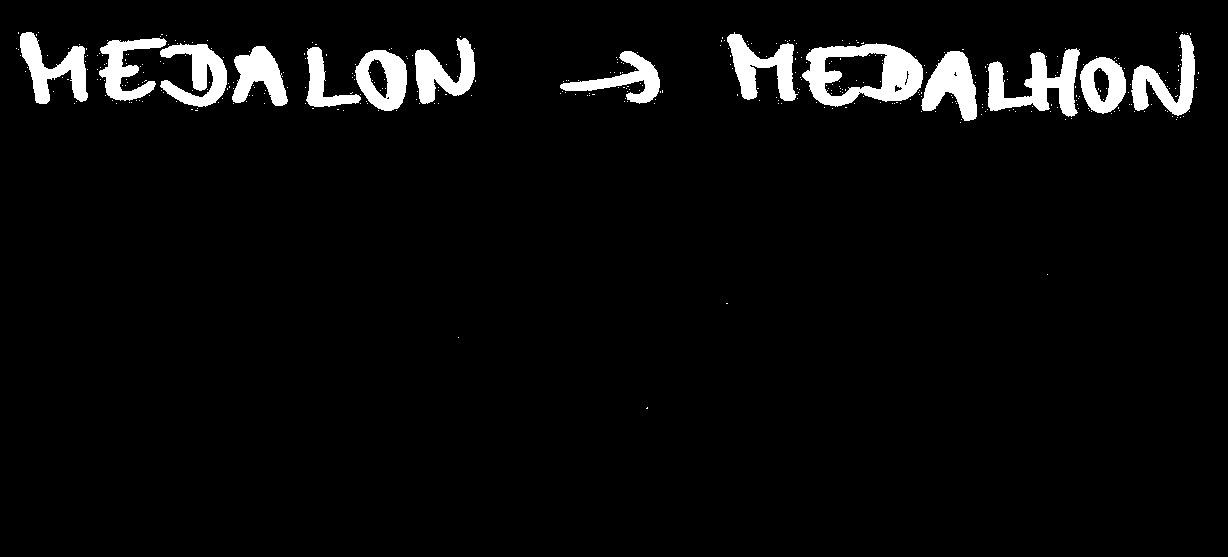 MEDALON → MEDALHON